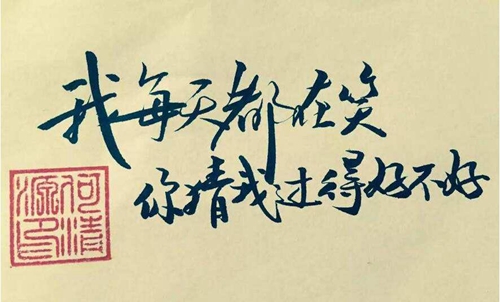 我每天都在笑
你猜我过得好不好
何清
源印